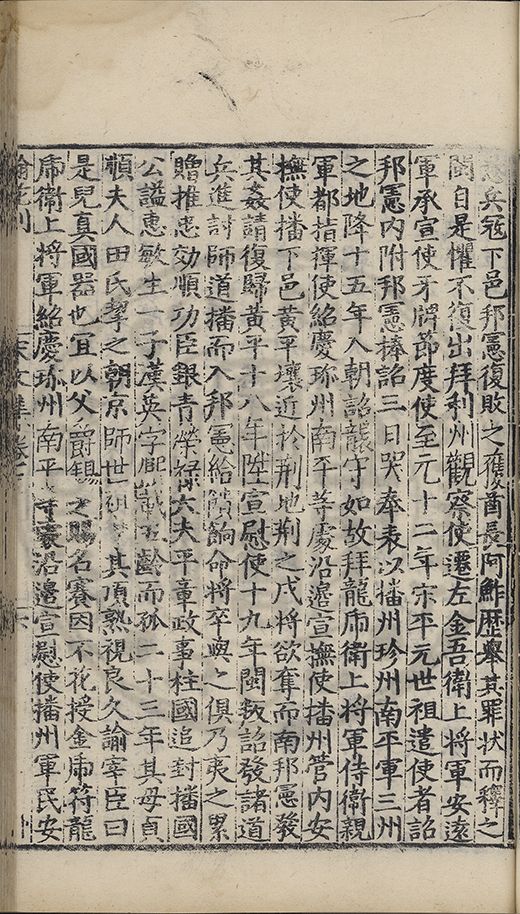 兵冦下邑邦憲復敗之獲酋長阿鮓歷舉其罪状而釋之
閩自是懼不復出拜利州觀察使遷左金吾衛上將軍安逺
軍承宣使牙牌節度使至元十二年宋平元世祖遣使者詔
邦憲内附邦憲捧詔三日哭奉表以播州珍州南平軍三州
之地降十五年入朝詔襲守如故拜龍虎衛上將軍侍衛親
軍都指揮使紹慶珎州南平等處沿邉宣撫使播州管内安
撫使播下邑黄平壤近於荆地荆之戍將欲奪而南邦憲發
其姦請復歸黄平十八年陞宣慰使十九年閩叛詔發諸道
兵進討師道播而入邦憲給饋餉命將卒與之俱乃夷之累
贈推忠効順功臣銀青榮禄大夫平章政事柱國追封播國
公謚惠敏生一子漢英字熈載五齡而孤二十三年其母貞
順夫人田氏挈之朝京師世祖其頂熟視良久諭宰臣曰
是児真國器也宜以父爵錫之賜名賽因不花授金虎符龍
虎衛上將軍紹慶珎州南平等處沿邉宣慰使播州軍民安